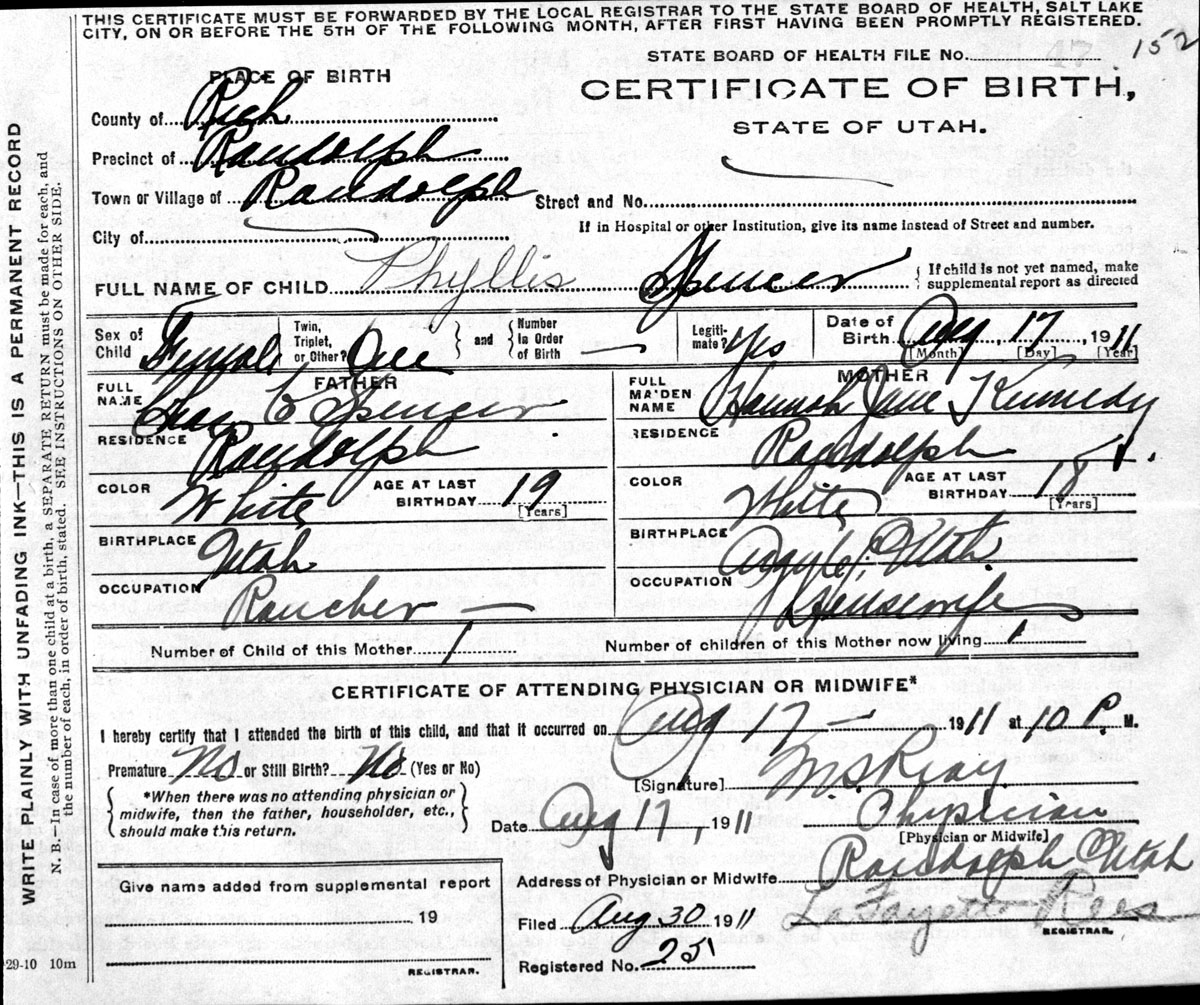 THIS CERTIFICATE MUST BE FORWARDED BY THE LOCAL REGISTRAR TO THE STATE BOARD OF HEALTH, SALT LAKE
CITY, ON OR BEFORE THE 5TH OF THE FOLLOWING MONTH, AFTER FIRST HAVING BEEN PROMPTLY REGISTERED.
STATE BOARD OF HEALTH FILE No. 152
PLACE OF BIRTH
CERTIFICATE OF BIRTH,
STATE OF UTAH.
County of Rich
Precinct of Randolph
Town or Village of Randolph Street and No.
City of If in Hospital or other Institution, give its name instead of Street and number.
FULL NAME OF CHILD Phyllis Spencer { If child is not yet named, make
supplemental report as directed
Sex of Child Female Twin, Triplet, or Other? One } and { Number in Order of Birth — Legitimate? Yes Date of Birth Aug, 17, 1911
[Month] [Day] [Year]
FATHER
FULL NAME Chas C Spencer
RESIDENCE Randolph
COLOR White AGE AT LAST BIRTHDAY 19 [Years]
BIRTHPLACE Utah
OCCUPATION Rancher —
MOTHER
FULL MAIDEN NAME Hannah Jane Kennedy
RESIDENCE Randolph
COLOR White AGE AT LAST BIRTHDAY 18 [Years]
BIRTHPLACE Argyle, Utah.
OCCUPATION Housewife
Number of Child of this Mother 1 Number of children of this Mother now living 1
CERTIFICATE OF ATTENDING PHYSICIAN OR MIDWIFE*
I hereby certify that I attended the birth of this child, and that it occurred on Aug 17 — 1911 at 10 P. M.
Premature No or Still Birth? No (Yes or No)
[Signature]
{ *When there was no attending physician or
midwife, then the father, householder, etc.,
should make this return. }
Date Aug 17, 1911 Physician
[Physician or Midwife]
Address of Physician or Midwife Randolph Utah
Filed Aug 30 1911 LaFayette Rees
REGISTRAR.
Registered No. 25
Give name added from supplemental report
19
REGISTRAR.
29-10 10m
WRITE PLAINLY WITH UNFADING INK—THIS IS A PERMANENT RECORD
N. B.—In case of more than one child at a birth, a SEPARATE RETURN must be made for each, and
the number of each, in order of birth, stated. SEE INSTRUCTIONS ON OTHER SIDE.